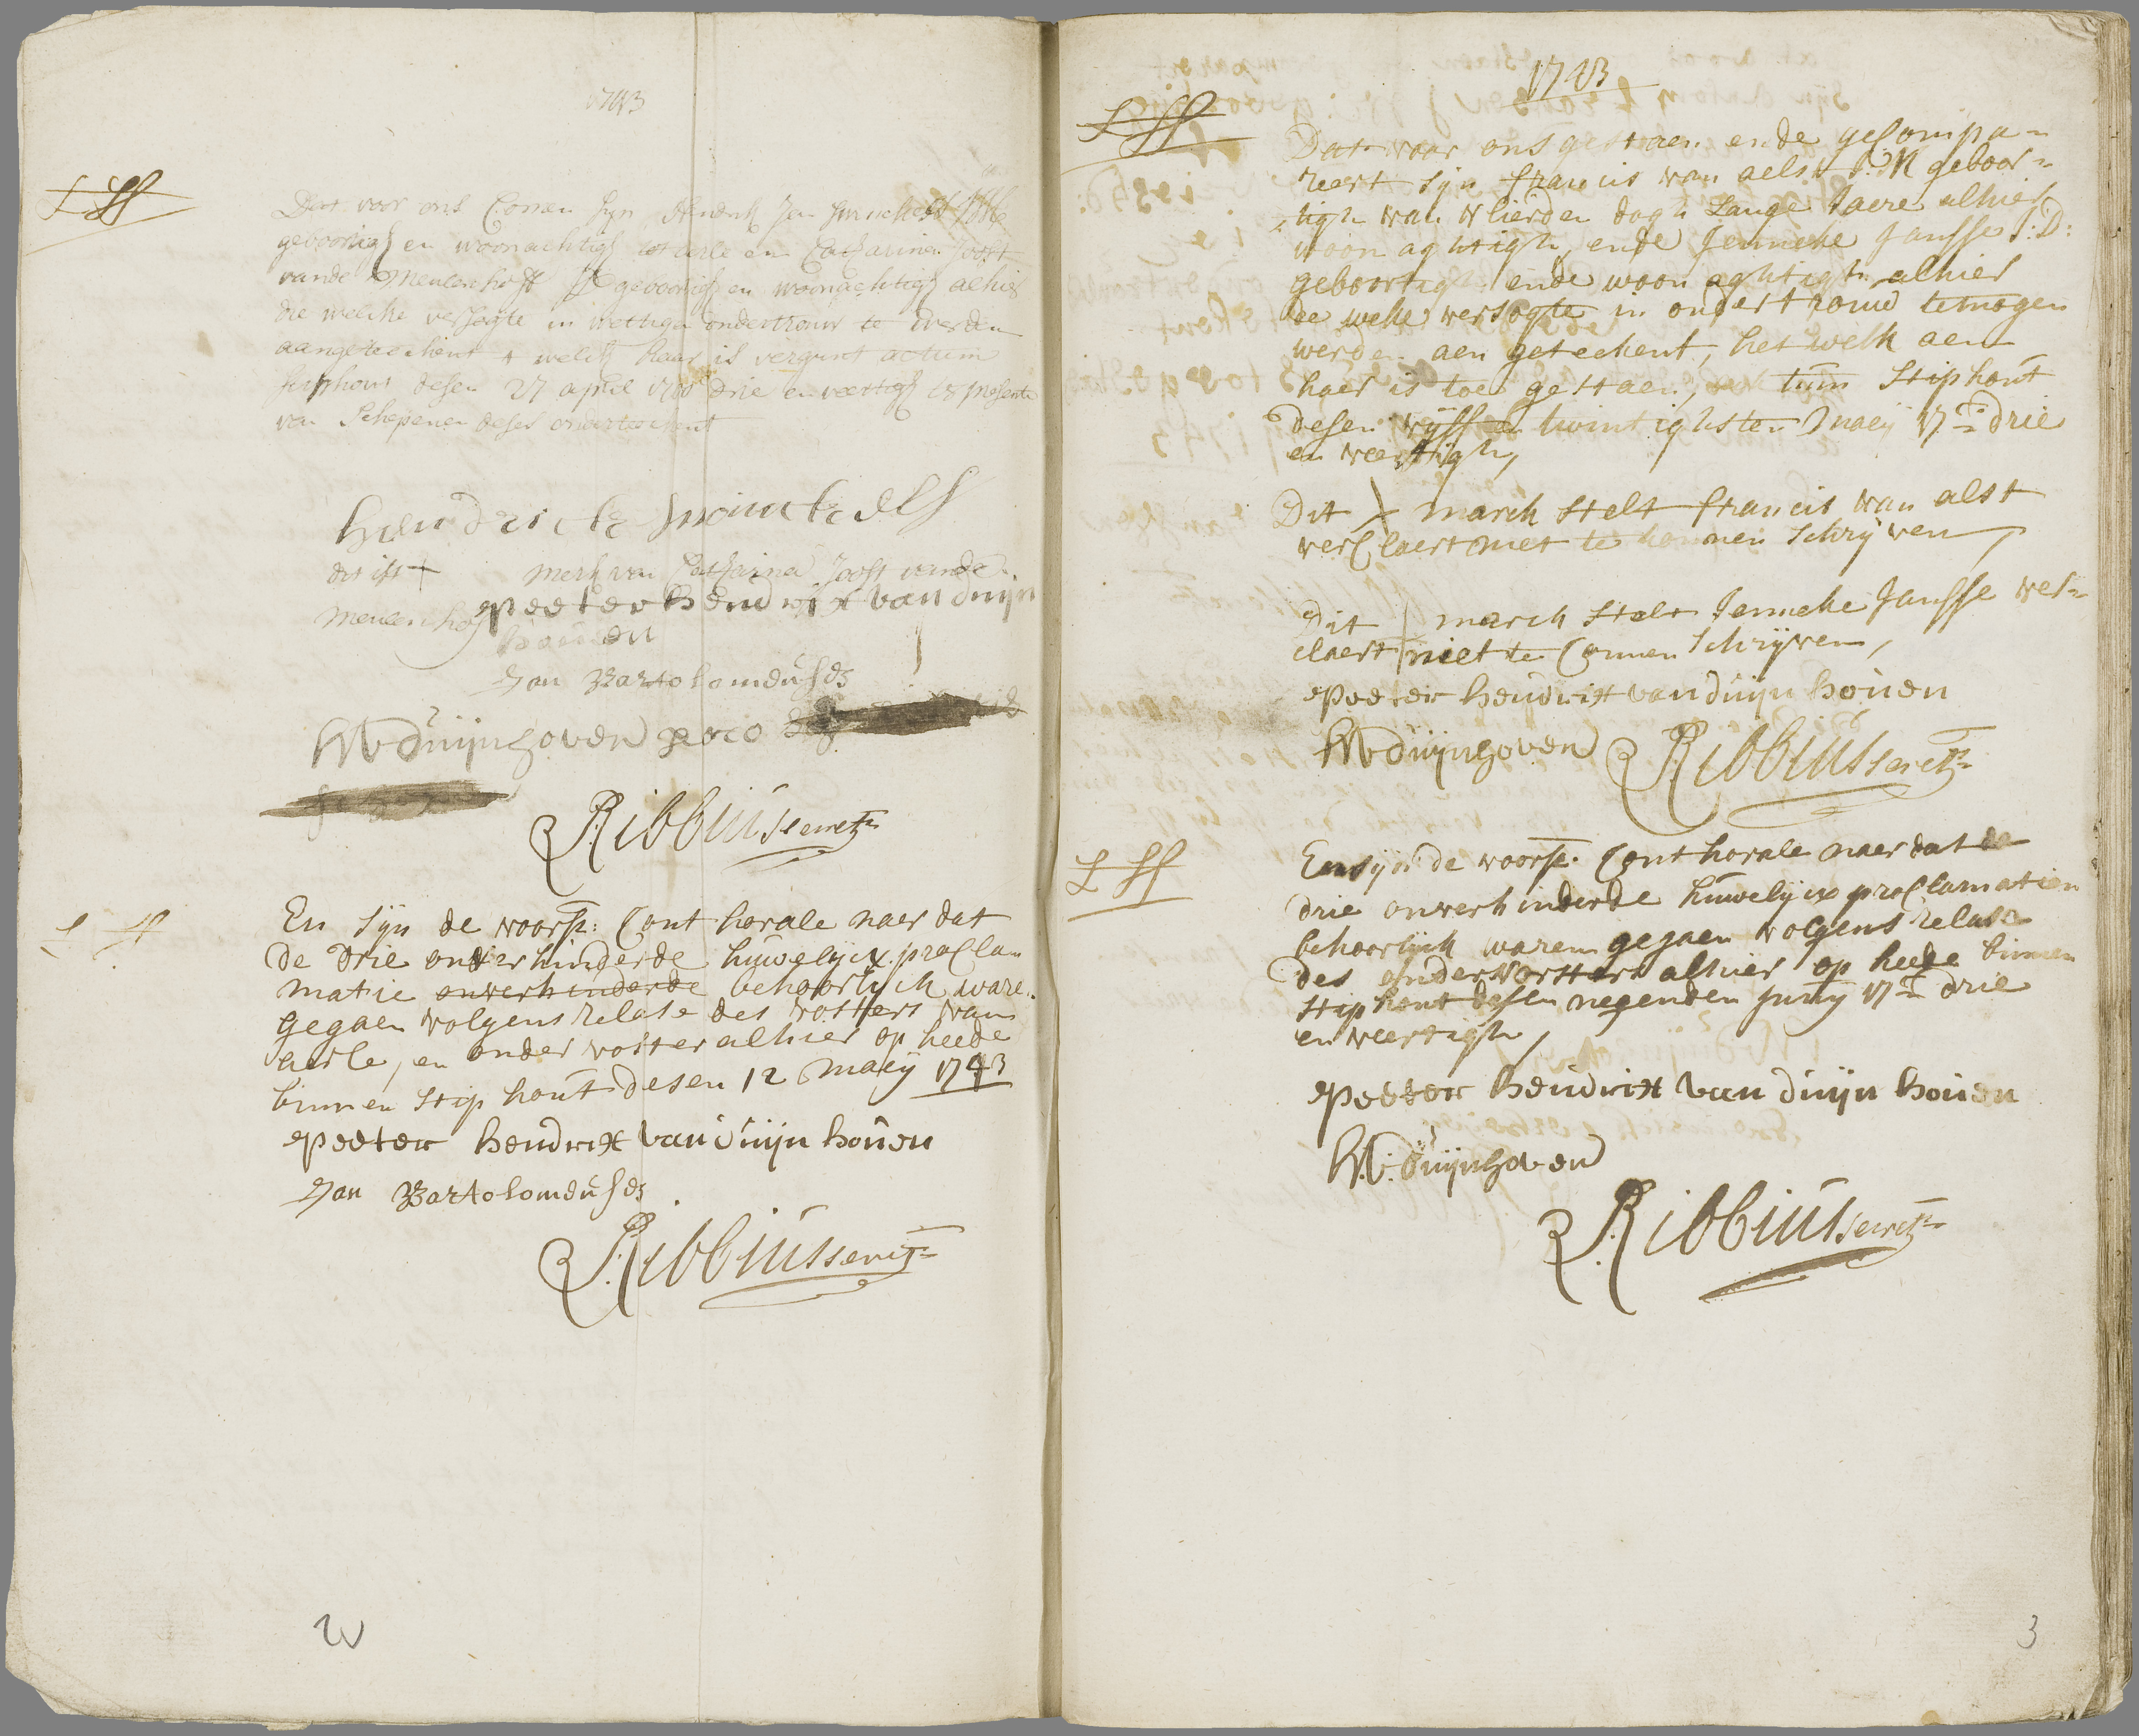 1743
Dat voor ons Comen syn Hendrik Jan
geboortigh en woonachtigh tot aerle en Catharina Joost
vande Meulenhoff JD geboortigh en woonachtigh alhier
die welcke versogte in wettige ondertrouw te werden
aangeteekent + welck haar is vergunt actum
stiphout desen 27 april 1700 drie en veertigh ter presente
van Schepenen deses onderteekent
Hendrick
dit ist + merk van Catharina Joost vande
Meulenhof
Peeter hendrix van duijn
houen
Jan Bartolomeuses
HVDuijnhoven pro
PRibbius secretrs
En sijn de voorsz: Conthorale naer dat
de drie onverhinderde huwelijcx proclam
matie onverhinderde behoorlijck ware
gegaen volgens relate des vosters van
aerle, en onder voster alhier op heede
binnen stiphout desen 12 Maeij 1743
Peeter hendrix van duijn houen
Jan Bartolomeuses
PRibbius secretrs
2
1743
Dat voor ons gestaen ende gecompa=
reert sijn francis van aelst J:M geboor=
tigh van vlierden dogh Lange Jaere alhier
woonaghtigh, ende Jenneke Jansse J:D:
geboortigh ende woonaghtigh alhier
de welke versogte in ondertrouw te mogen
werden aen geteekent, het welk aen
haer is toe gestaen, actum Stiphout
desen vijff en twintighsten Maeij 17 drie
en veertigh,
Dit X march stelt francis van alst
verclaert niet te konnen schrijven,
Dit | march stelt Jenneke Jansse ver=
claert niet te Connen schrijven,
Peeter hendrix van duijn houen
HVDuijnhoven PRibbius secretrs
En sijn de voorsz. Conthorale naer dat de
drie onverhinderde huwelijcx proclamatien
behoorlijck waren gegaen volgens relate
des ondervorsters alhier op heede binnen
Stiphout desen negenden Junij 17 drie
en veertigh,
Peeter hendrix van duijn houen
HV:Duijnhoven
PRibbius secretrs
3